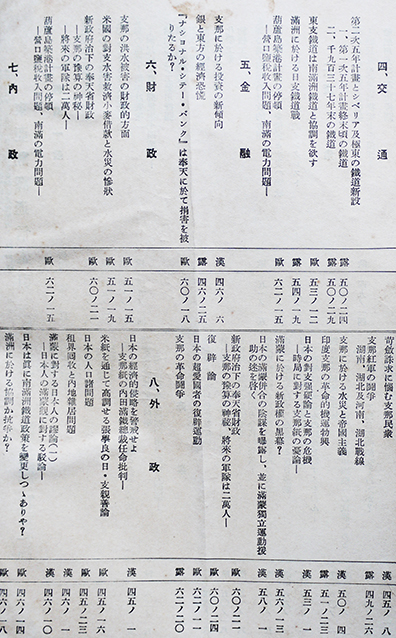 四、交通
第二次五年計畫とシベリア及極東の鐵道新設
一、第一次五年計畫終末頃の鐵道
二、千九百三十七年末の鐵道 露 五〇ノ二四
東支鐵道は南滿洲鐵道と協調を欲す 歐 五三ノ一二
滿洲に於ける日支鐵道戰 露 五四ノ一九
葫蘆島築港計畫の停頓
―營口鹽稅收入問題、南滿の電力問題― 歐 六二ノ一五
五、金融
支那に於ける投資の新傾向 漢 四六ノ六
銀と東方の經濟恐慌 露 四六ノ二五
『ナショナル・シテー・バンク』は奉天に於て損害を被
りたるか？ 歐 六〇ノ一八
六、財政
支那の洪水被害の財政的方面 歐 五一ノ一五
米國の對支水害救濟小麥借款と水災の慘狀 歐 五一ノ一九
新政府治下の奉天省財政
―支那の豫算の神秘―
―將來の軍隊は二萬人― 歐 六〇ノ二一
葫蘆島築港計畫の停頓
―營口鹽稅收入問題、南滿の電力問題― 歐 六二ノ一五
七、內政
苛斂誅求に惱む支那民衆 漢 四五ノ八
支那紅軍の鬪爭
湖南、湖北及河南、湖北戰線 露 四九ノ二〇
支那に於ける水災と帝國主義 漢 五〇ノ四
印度支那の革命的機運勃興 露 五一ノ二三
日本の對支强硬論と支那の危機
―時局に對する支那紙の憂論― 漢 五三ノ一
滿蒙に於ける新政權の黑幕？ 歐 五六ノ一三
日本の滿蒙併合の陰謀を曝露し、並に滿蒙獨立運動援
助の迷妄を啓く 漢 五八ノ一
新政府治下の奉天省財政
―支那の豫算の神秘、將來の軍隊は二萬人― 歐 六〇ノ二一
復辟論 漢 六一ノ一
日本の超愛國者の復辟運動 歐
支那の革命鬪爭 露 六二ノ二〇
八、外政
日本の經濟的侵略を警戒せよ
―支那紙の內田滿鐵總裁任命批判― 漢 四五ノ一
米紙を通じて高調せる張學良の日・支親善論 歐 四五ノ一六
日本の人口諸問題 露 四五ノ二三
租界回收と內地雜居問題 漢 四六ノ一
滿蒙に對する日本人の謬論(二)
―日本人の滿蒙觀に對する駁論― 漢 四六ノ一〇
日本は眞に南滿洲鐵道政策を變更しつゝありや？ 歐 四六ノ一四
滿洲に於ける協調か抗爭か？ 歐 四六ノ一八